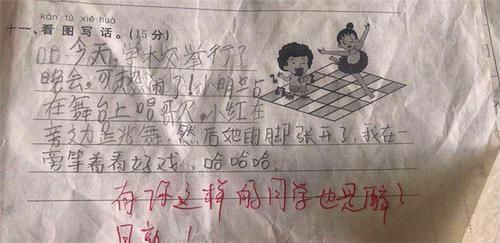 kàn tú xiě huà
十一、看图写话。(15分)
今天，学木交举行了
晚会，可热闹了！小明占
在舞台上唱哥欠，小红在
旁力是兆舞，然后她两脚张开了，我在一
旁等着看好戏，哈哈哈
有你这样的同学也是醉了